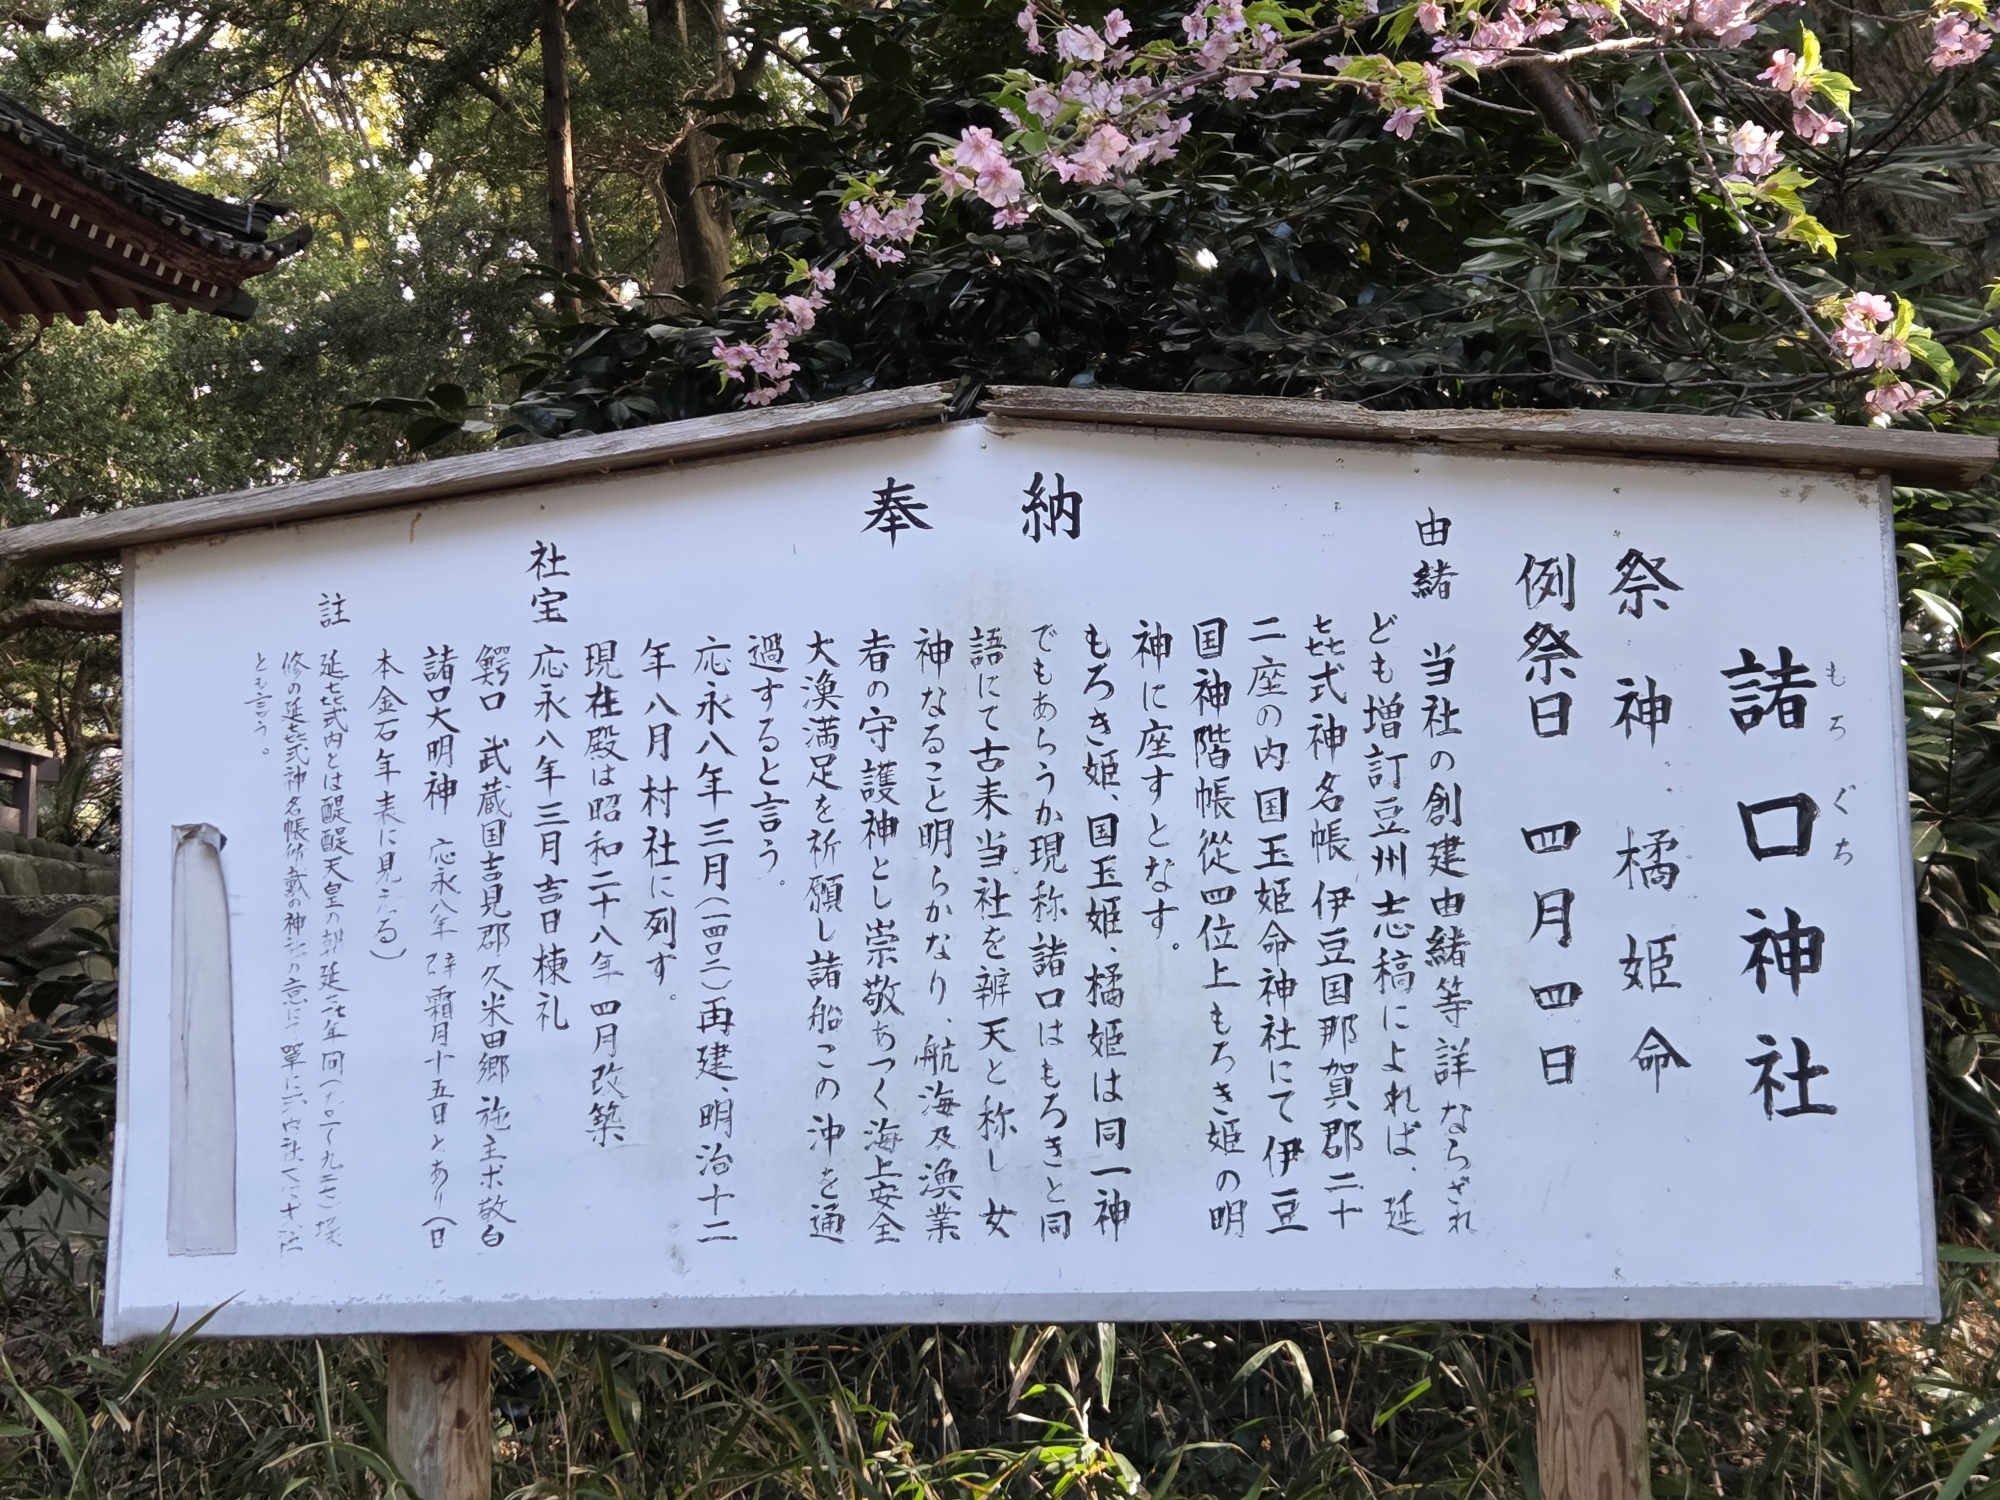 奉納
諸口神社
もろぐち
祭神 橘姫命
例祭日 四月四日
由緒 当社の創建由緒等詳ならざれ
ども増訂豆州志稿によれば、延
㐂式神名帳 伊豆国那賀郡二十
二座の内国玉姫命神社にて伊豆
国神階帳從四位上もろき姫の明
神に座すとなす。
もろき姫、国玉姫、橘姫は同一神
でもあらうか現称諸口はもろきと同
語にて古来当社を辨天と称し女
神なること明らかなり、航海及漁業
者の守護神とし崇敬あつく海上安全
大漁満足を祈願し諸船この沖を通
過すると言う。
応永八年三月(一四〇二)再建、明治十二
年八月村社に列ず。
現在殿は昭和二十八年四月改築
社宝 応永八年三月吉日棟礼
鰐口 武蔵国吉見郡久米田郷 施主 敬白
諸口大明神 応永八年 霜月十五日とあり(日
本金石年表に見える)
註 延㐂式内とは醍醐天皇の朝延㐂年間
修の延㐂式神名帳所載の神社の意にて單に式内社
とも言う。